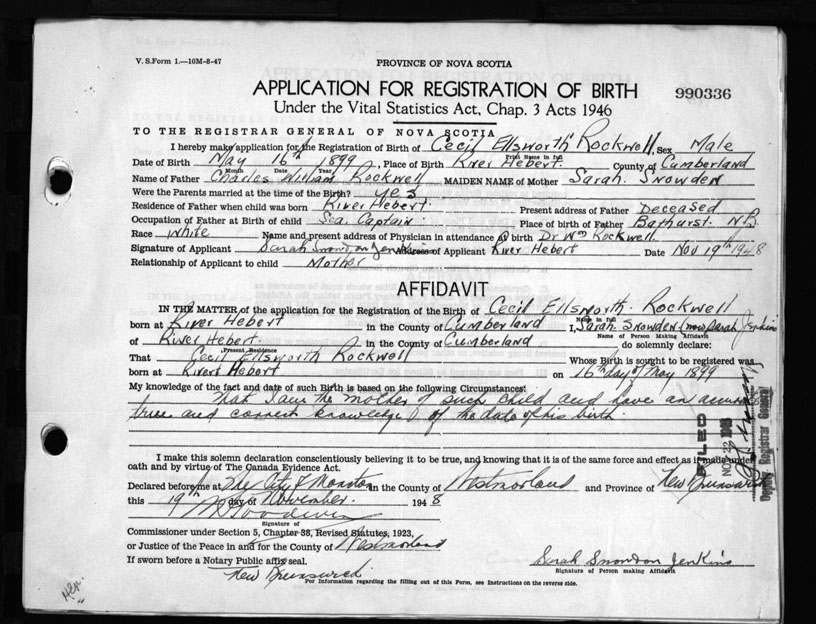 V. S. Form 1.—10M-8-47
PROVINCE OF NOVA SCOTIA
APPLICATION FOR REGISTRATION OF BIRTH
990336
Under the Vital Statistics Act, Chap. 3 Acts 1946
TO THE REGISTRAR GENERAL OF NOVA SCOTIA
I hereby make application for the Registration of Birth of Cecil Ellsworth Rockwell Sex Male
Print Name in full
Date of Birth May 16th 1899, Place of Birth River Hebert. County of Cumberland
Month Date Year
Name of Father Charles William Rockwell MAIDEN NAME of Mother Sarah. Snowden
Were the Parents married at the time of the Birth? yes
Residence of Father when child was born River Hebert. Present address of Father Deceased
Occupation of Father at Birth of child Sea Captain. Place of birth of Father Bathurst N.B.
Race White Name and present address of Physician in attendance @ birth Dr Wm Rockwell.
Signature of Applicant Sarah Snowdon Jenkins Address of Applicant River Hebert Date Nov 19th 1948
Relationship of Applicant to child Mother
AFFIDAVIT
IN THE MATTER of the application for the Registration of the Birth of Cecil Ellsworth. Rockwell
Name in full
born at River Hebert in the County of Cumberland I, Sarah Snowden (now Sarah Jenkins
Name of Person Making Affidavit
of River Hebert. in the County of Cumberland do solemnly declare:
Present Residence
That Cecil Ellsworth Rockwell Whose Birth is sought to be registered was
born at River Hebert on 16th day of May 1899
My knowledge of the fact and date of such Birth is based on the following Circumstances:
That I am the mother of such child and have an
true and correct knowledge of the date of his birth.
I make this solemn declaration conscientiously believing it to be true, and knowing that it is of the same force and effect as if made under
oath and by virtue of The Canada Evidence Act.
Declared before me at The City of Moncton in the County of Westmorland and Province of New Brunswick
this 19th day of November. 1948
Signature of
Commissioner under Section 5, Chapter 38, Revised Statutes, 1923,
or Justice of the Peace in and for the County of Westmorland
If sworn before a Notary Public affix seal.
New Brunswick
Sarah Snowdon Jenkins
Signature of Person making Affidavit
For Information regarding the filling out of this Form, see Instructions on the reverse side.
FILED
Deputy Registrar General